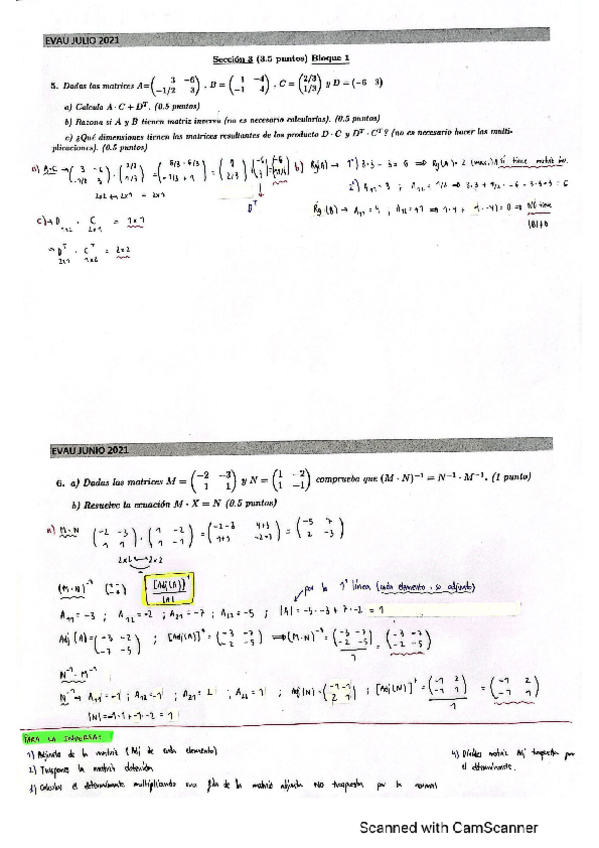 EVAU JULIO 2021
Sección 3 (3.5 puntos) Bloque 1
5. Dadas las matrices A=(3 −6; −1/2 3), B=(1 −4; −1 4), C=(2/3; 1/3) y D=(−6 3)
a) Calcula A · C + Dᵀ. (0.5 puntos)
b) Razona si A y B tienen matriz inversa (no es necesario calcularlas). (0.5 puntos)
c) ¿Qué dimensiones tienen las matrices resultantes de los producto D · C y Dᵀ · Cᵀ? (no es necesario hacer las multiplicaciones). (0.5 puntos)
a) A·C → (3 −6; −1/2 3) · (2/3; 1/3) =
Dᵀ
b) Rg(A) →
si tiene matriz inv.
Rg(B) →
c) → D · C = 1x1
1x2 2x1
→ Dᵀ · Cᵀ = 2x2
2x1 1x2
EVAU JUNIO 2021
6. a) Dadas las matrices M=(−2 −3; 1 1) y N=(1 −2; 1 −1) comprueba que (M · N)⁻¹ = N⁻¹ · M⁻¹. (1 punto)
b) Resuelve la ecuación M · X = N (0.5 puntos)
a) M·N (−2 −3; 1 1) · (1 −2; 1 −1) = (−2−3 4+3; 1+1 −2−1) = (−5 7; 2 −3)
2x2 2x2
(M·N)⁻¹ [Adj(A)]ᵗ / |A|
por la 1ª línea (cada elemento · su adjunto)
A₁₁=−3 ; A₁₂=−2 ; A₂₁=−7 ; A₂₂=−5 ; |A|=−5·−3+7·−2=1
Adj(A)=(−3 −2; −7 −5) ; [Adj(A)]ᵗ=(−3 −7; −2 −5) ⟹ (M·N)⁻¹=(−3 −7; −2 −5)/1=(−3 −7; −2 −5)
N⁻¹·M⁻¹
N⁻¹→ A₁₁=−1 ; A₁₂=−1 ; A₂₁=2 ; A₂₂=1 ; Adj(N)=(−1 −1; 2 1) ; [Adj(N)]ᵗ=(−1 2; −1 1)/1 = (−1 2; −1 1)
|N|=−1·1+−1·−2=1
PARA LA INVERSA:
1) Adjunta de la matriz (Adj de cada elemento)
2) Trasponer la matriz obtenida
3) Calculas el determinante multiplicando una fila de la matriz adjunta NO traspuesta por la normal
4) Divides matriz Adj traspuesta por el determinante.
Scanned with CamScanner